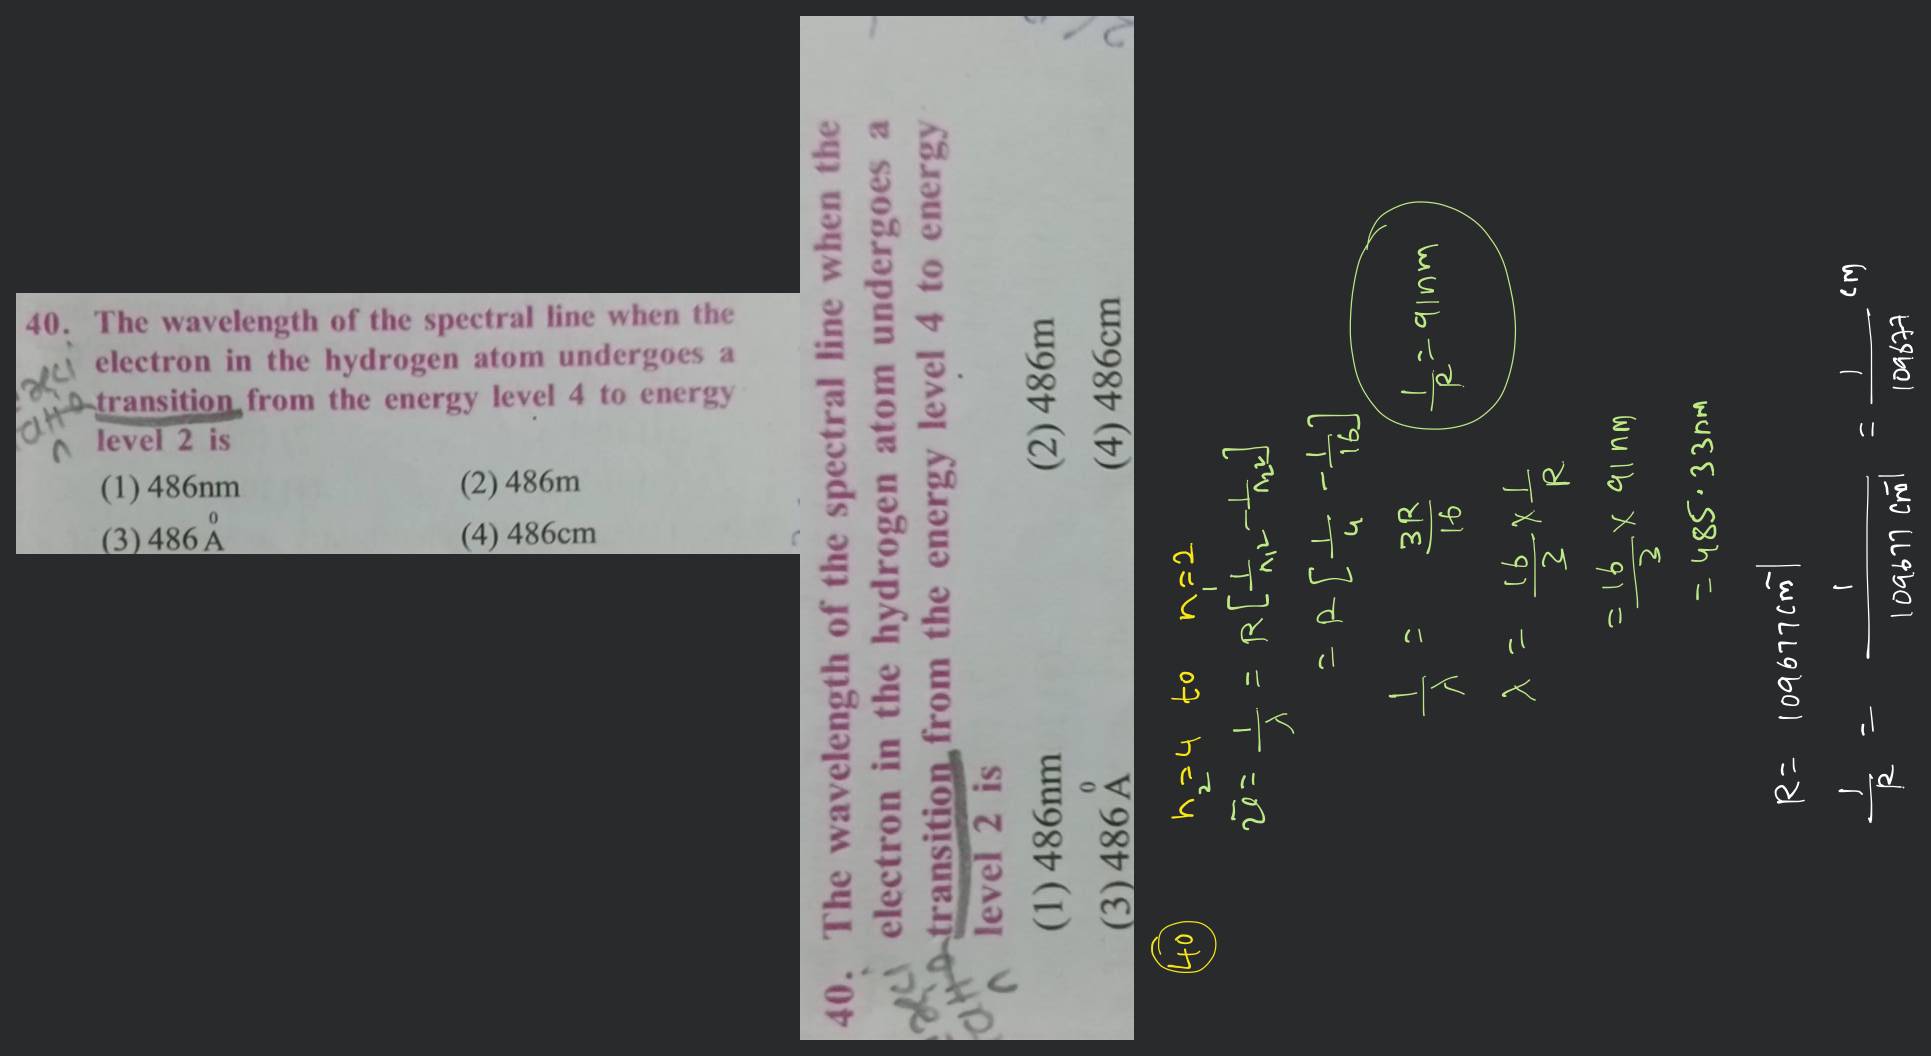 40. The wavelength of the spectral line when the
electron in the hydrogen atom undergoes a
transition from the energy level 4 to energy
level 2 is
(1) 486nm (2) 486m
(3) 486 Å (4) 486cm
40. The wavelength of the spectral line when the
electron in the hydrogen atom undergoes a
transition from the energy level 4 to energy
level 2 is
(1) 486nm (2) 486m
(3) 486 Å (4) 486cm
40
n₂=4 to n₁=2
ν̄ = 1/λ = R[1/n₁² - 1/n₂²]
= R[1/4 - 1/16]
1/λ = 3R/16
1/R = 91nm
λ = 16/3 x 1/R
= 16/3 x 91nm
= 485.33nm
R = 109677cm⁻¹
1/R = 1/109677cm⁻¹ = 1/109677 cm